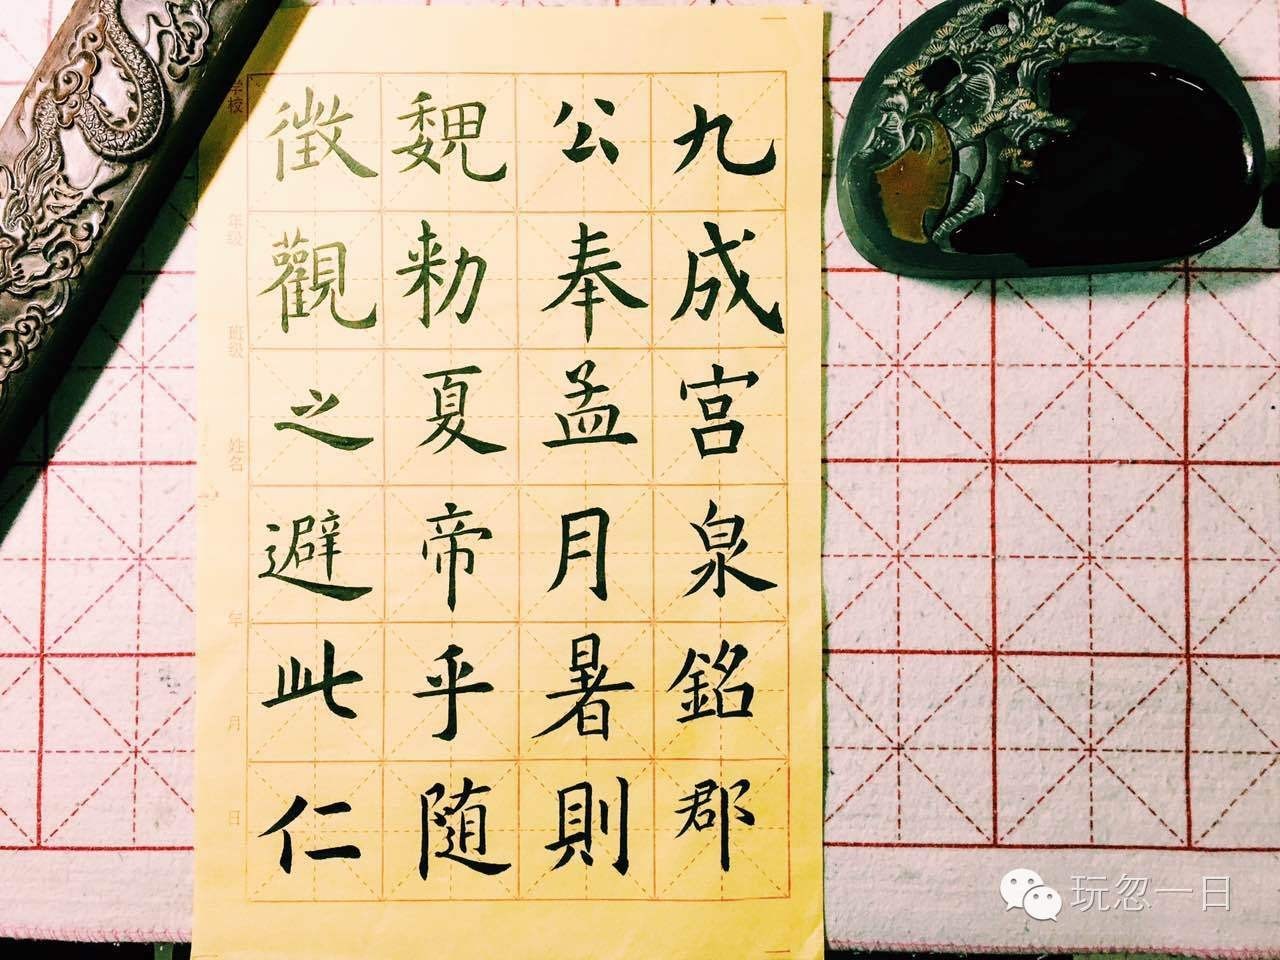 九成宮泉銘郡
公奉孟月暑則
魏勑夏帝乎随
徴觀之避此仁
学校
年级
班级
姓名
年
月
日
玩忽一日